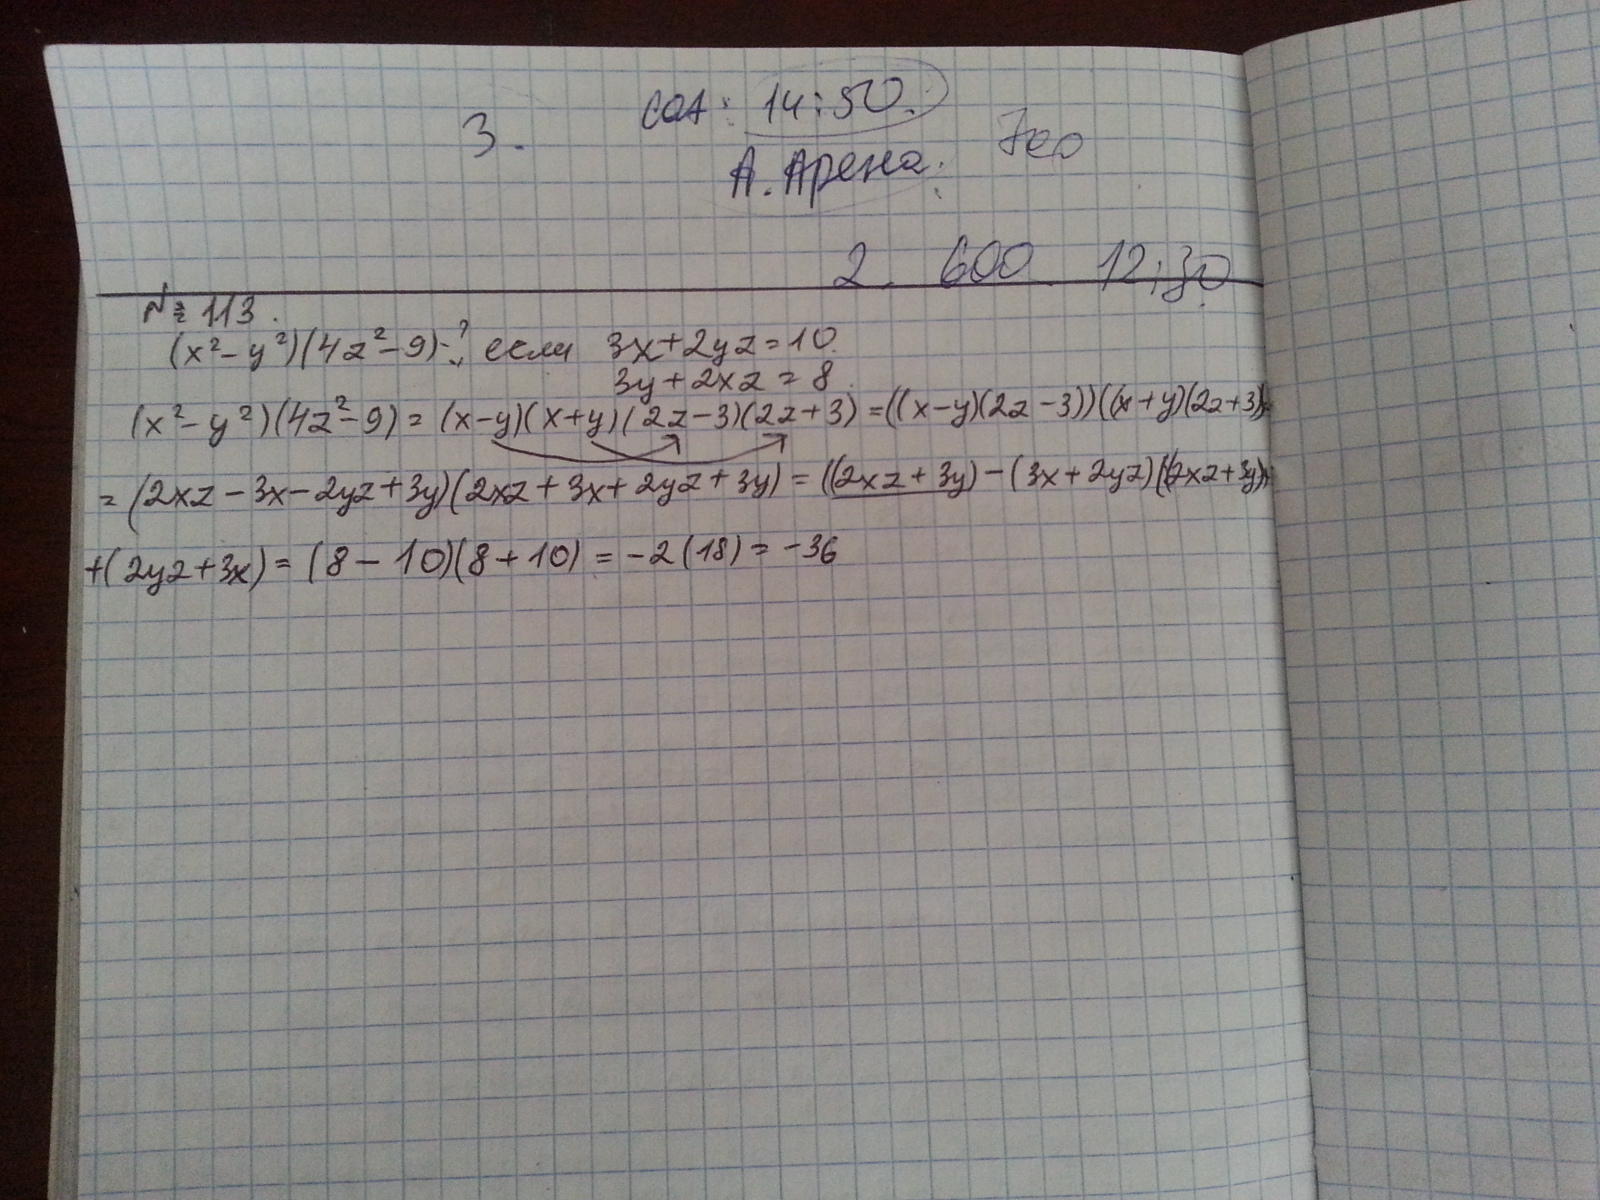 3.
14:50.
А. Арена.
2. 600 12:30
№ 113.
(x²-y²)(4z²-9)-? если 3x+2yz=10.
3y+2xz=8.
(x²-y²)(4z²-9)=(x-y)(x+y)(2z-3)(2z+3)=((x-y)(2z-3))((x+y)(2z+3))=
=(2xz-3x-2yz+3y)(2xz+3x+2yz+3y)=((2xz+3y)-(3x+2yz)((2xz+3y)+
+(2yz+3x)=(8-10)(8+10)=-2(18)=-36